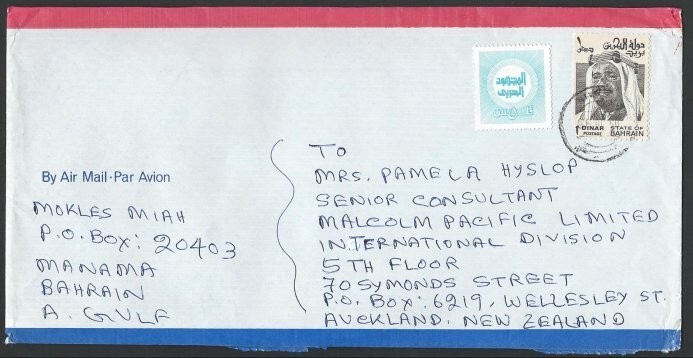 المجهود
الحربي
دولة البحرين
1 DINAR
POSTAGE
STATE OF
BAHRAIN
By Air Mail·Par Avion
MOKLES MIAH
P.O. BOX: 20403
MANAMA
BAHRAIN
A. GULF
TO
MRS. PAMELA HYSLOP
SENIOR CONSULTANT
MALCOLM PACIFIC LIMITED
INTERNATIONAL DIVISION
5TH FLOOR
70 SYMONDS STREET
P.O. BOX: 6219, WELLESLEY ST.
AUCKLAND, NEW ZEALAND